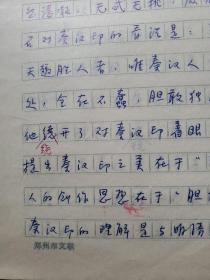 否对秦汉印的看法是：
天趣胜人者，唯秦汉人
处，全在不蠢，胆敢独
他绕开了对秦汉印着眼
统
提出秦汉印之美在于“
人的创作思想在于“胆
秦汉印的理解是与明清
郑州市文联